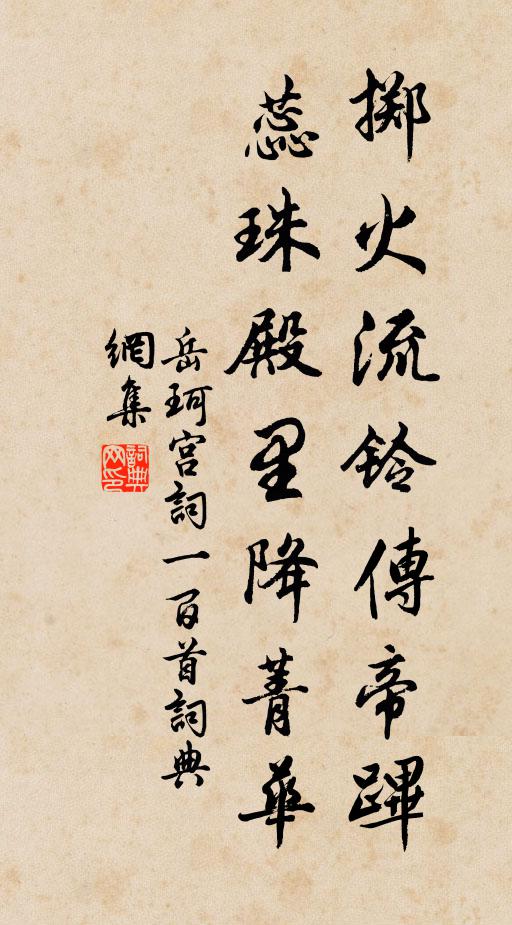 掷火流铃傳帝蹕
蕊珠殿里降菁華
岳珂宫詞一百首詞典
網集
詞典
网印